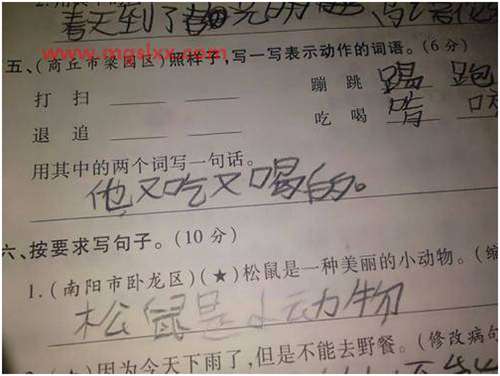 春天到了
www.mgslxx.com
五、(商丘市梁园区)照样子,写一写表示动作的词语。(6分)
打 扫 蹦 跳 踢 跑
退 追 吃 喝 啃
用其中的两个词写一句话。
他又吃又喝的。
六、按要求写句子。(10分)
1.(南阳市卧龙区)(★)松鼠是一种美丽的小动物。(缩
松鼠是小动物
)因为今天下雨了,但是不能去野餐。(修改病句